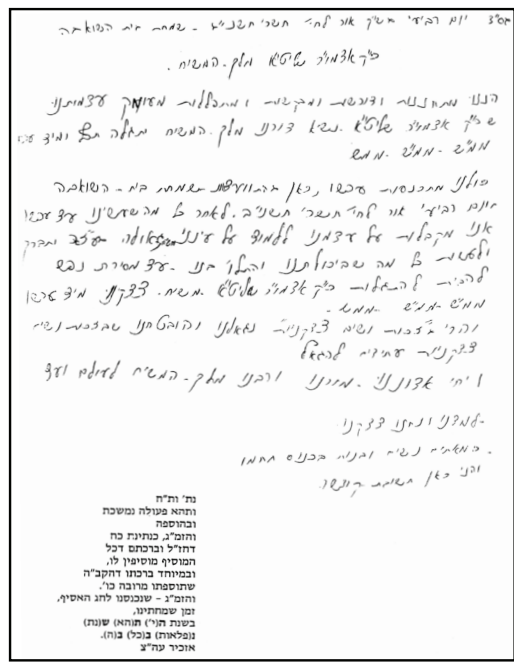 בס"ד יום רביעי אור לח"י תשרי תשנ"ב - שמחת בית השואבה
כ"ק אדמו"ר שליט"א מלך - המשיח.
הננו מתחננות ודורשות ומבקשות ומתפללות מעומק עצמותינו
שכ"ק אדמו"ר שליט"א נשיא דורנו מלך - המשיח יתגלה ומיד
ממ"ש - ממ"ש - ממש
כולנו מתכנסות עכשו, כאן בהתוועדות שמחת בית - השואבה
ביום רביעי אור לח"י תשרי תשנ"ב. לאחר כל מה שעשינו עד עכשו
אנו מקבלות על עצמנו ללמוד על עניני גאולה
ולעשות כל מה שביכולתנו והתלוי בנו - עד מסירת נפש
להביא להתגלות כ"ק אדמו"ר שליט"א - משיח צדקנו. מיד
ממ"ש - ממ"ש - ממש -
והרי בזכות נשים צדקניות נגאלנו והובטחנו שבזכות נשים
צדקניות עתידים להגאל
יחי אדוננו - מורנו ורבנו מלך - המשיח לעולם ועד
צדקנו
כמאתים נשים ובנות בכנוס
כאן
נת' ות"ח
ותהא פעולה נמשכת
ובהוספה
והזמ"ג, כנתינת כח
דחז"ל וברכתם דכל
המוסיף מוסיפין לו,
ובמיוחד ברכתו דהקב"ה
שתוספתו מרובה כו'.
והזמ"ג - שנכנסנו לחג האסיף,
זמן שמחתינו,
בשנת ה(י') ת(הא) ש(נת)
נ(פלאות) ב(כל) ב(ה).
אזכיר עה"צ